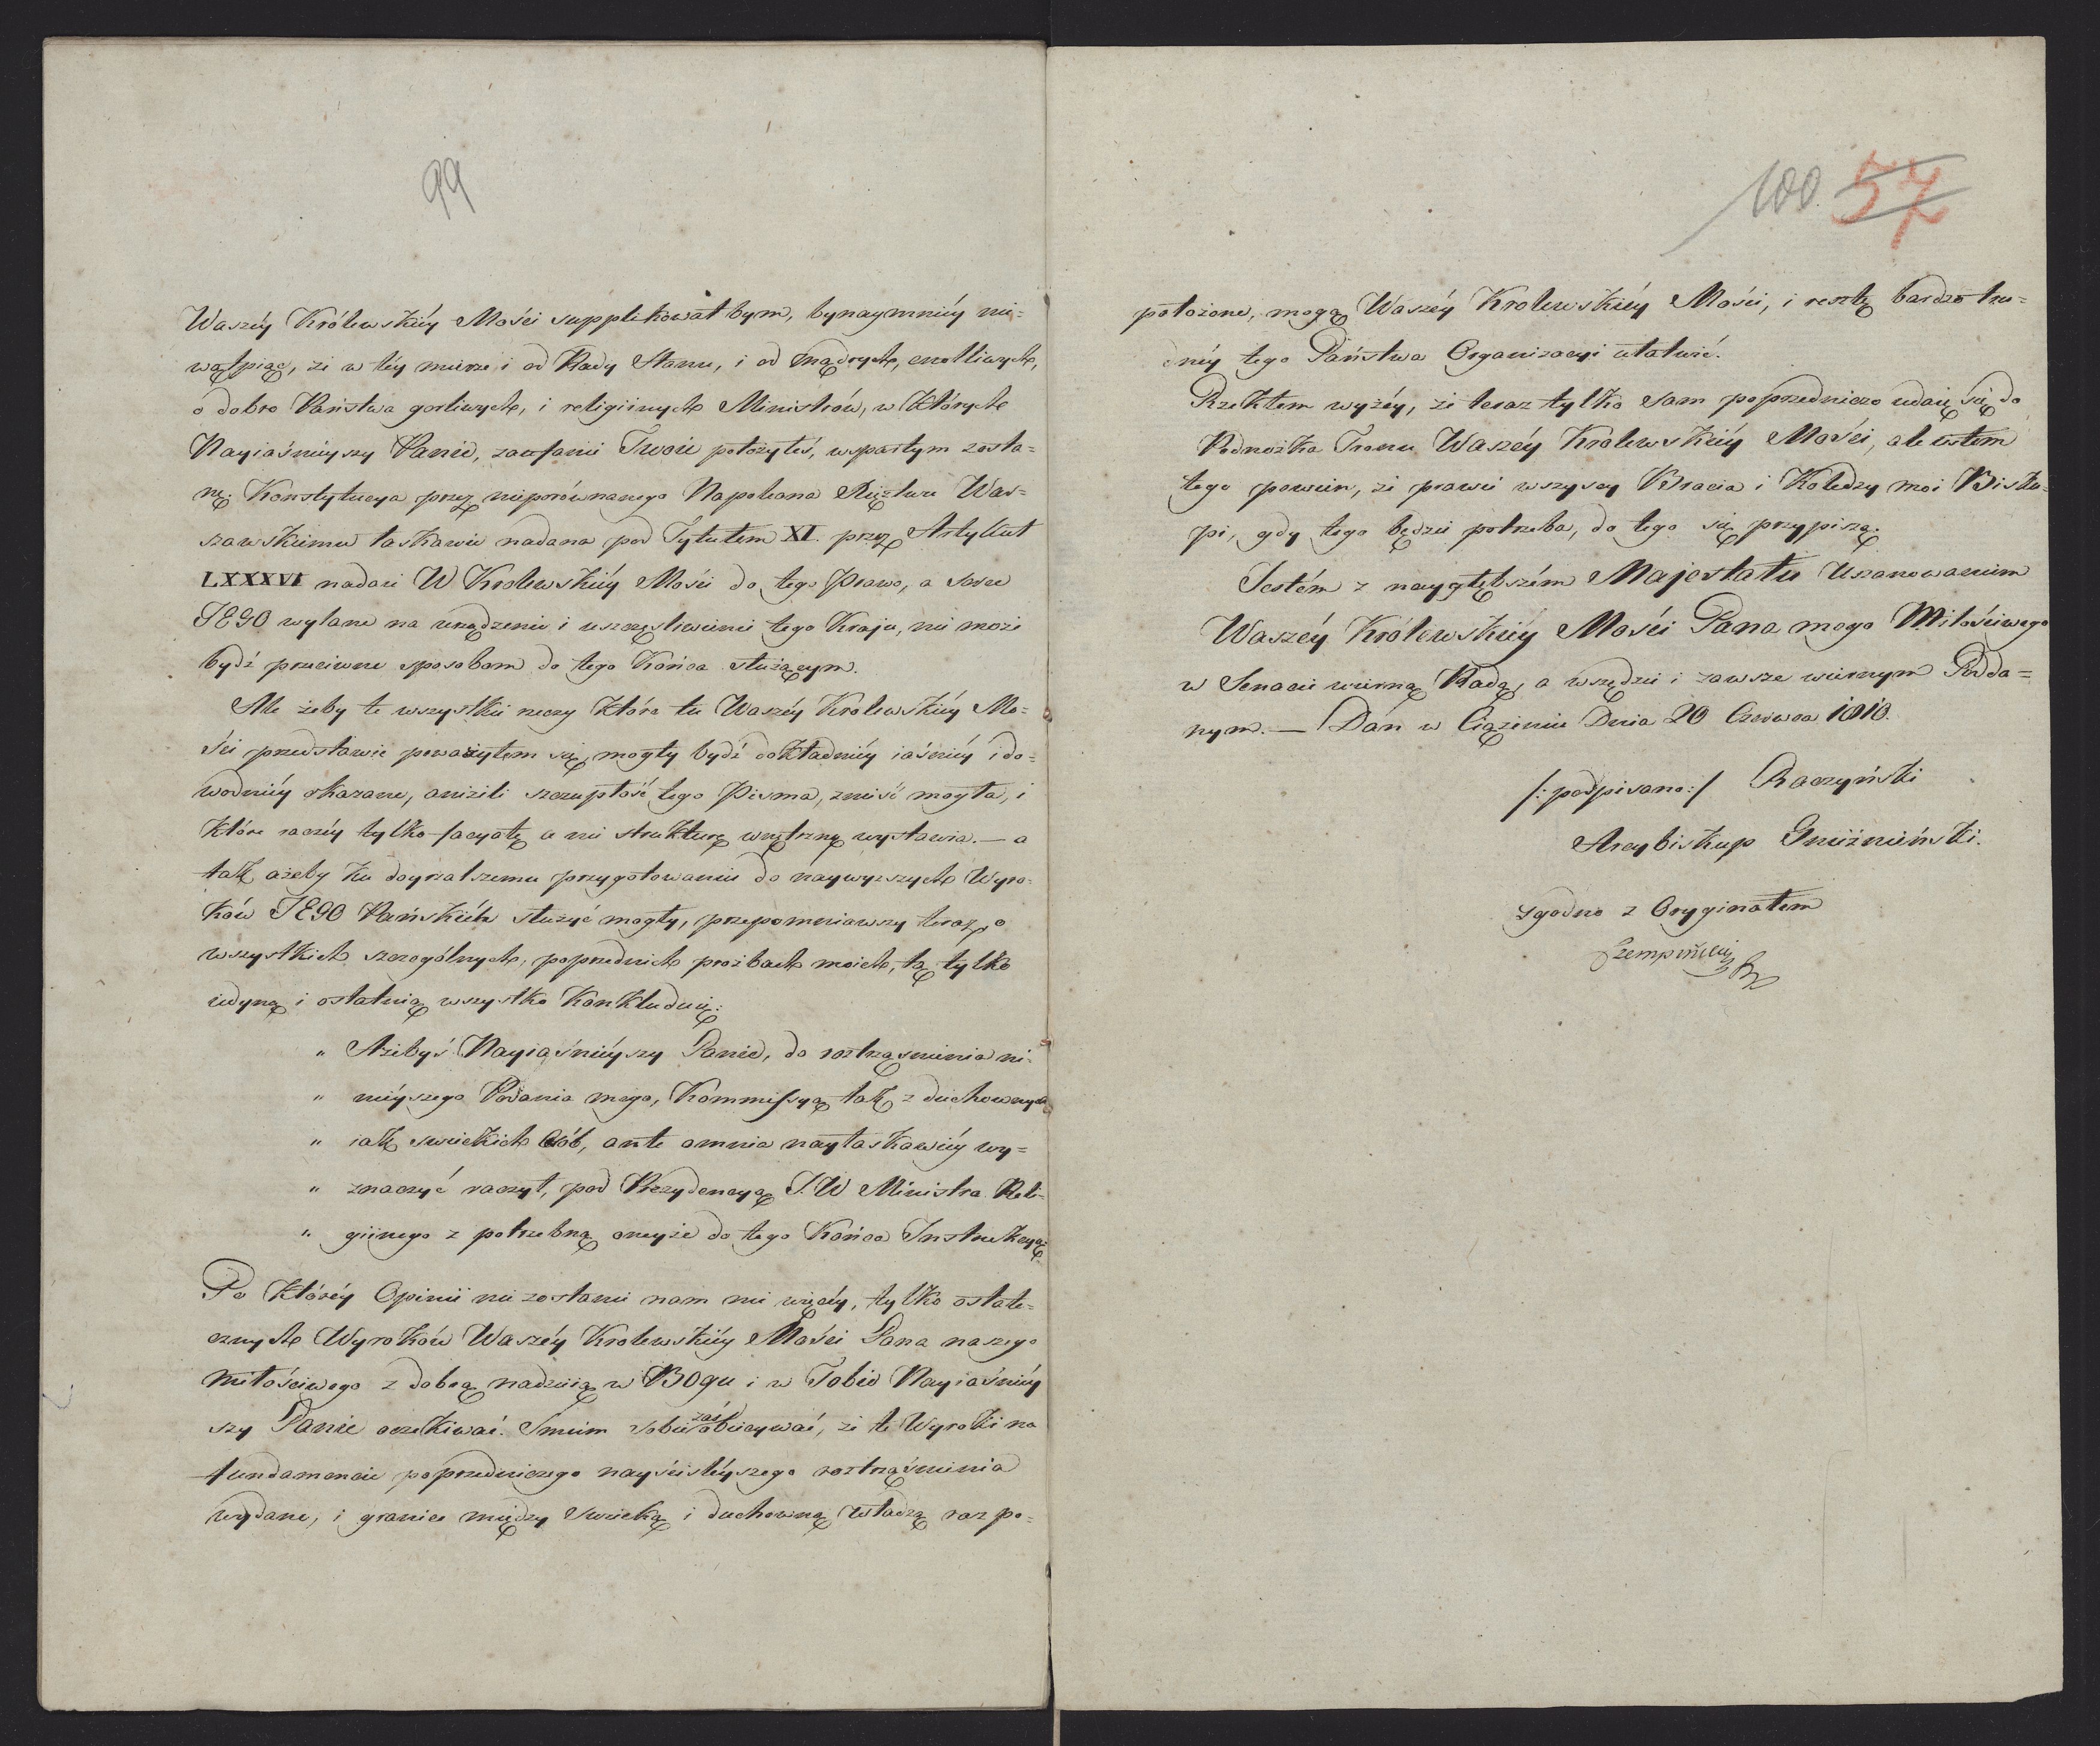 99
Waszéy Królewskiéy Mości supplikowałbym, bynaymniéy nie=
wątpiąc, że w téy mierze i od Rady Stanu, i od mądrych, cnotliwych,
o dobro Państwa gorliwych, i religiinych Ministrów, w których
Nayiaśnieyszy Panie, zaufanie Twoie położyłeś, wspartym zosta=
nę. Konstytucya przez nieporównanego Napoleona Xięztwu War=
szawskiemu łaskawie nadana pod Tytułem XI. przez Artykuł
LXXXVI nadaie W Krolewskiéy Mości do tego Prawo, a Serce
JEGO wylane na urządzenie i uszczęśliwienie tego Kraju, nie może
bydź przeciwne sposobom do tego Końca służącym.
Ale żeby te wszystkie rzeczy które tu Waszéy Krolewskiéy Mo=
ści przedstawić poważyłem się, mogły bydź dokładniéy iaśniéy i do=
wodniéy okazane, aniżeli szczupłość tego Pisma, znieść mogła, i
które raczéy tylko facyatę a nie strukturę wnętrzną wystawia. — a
tak ażeby ku doyrzalszemu przygotowaniu do naywyższych Wyro=
ków JEGO Pańskich służyć mogły, przepomniawszy teraz o
wszystkich szczególnych, poprzednich prożbach moich, tę tylko
iedyną i ostatnią wszystko Konkluduię:
" Ażebyś Nayiaśniéyszy Panie, do roztrząśnienia ni=
" nieyszego Podania mego, Kommissyą tak z duchownych
" iak swieckich Osób, ante omnia nayłaskawiéy wy=
" znaczyć raczył, pod Prezydencyą J.W Ministra Reli=
" giinego z potrzebną oneyże do tego Końca Instrukcyą.
Po któréy Opinii nie zostanie nam nic więcéy, tylko ostate=
cznych Wyroków Waszéy Krolewskiéy Mości Pana naszego
miłościwego z dobrą nadzieią w BOgu i w Tobie Nayiaśniéy
szy Panie oczekiwać. Smiem sobie zaś obiecywać, że te Wyroki na
fundamencie poprzedniczego nayściśleyszego roztrząśnienia
wydane, i granice między swiecką i duchowną władzą raz po=
100. 57
położone, mogą Waszéy Krolewskiéy Mości, i resztę bardzo tru=
dnéy tego Państwa Organizacyi ułatwić.
Rzekłem wyżéy, że teraz tylko sam poprzedniczo udaię się do
Podnożka Tronu Waszéy Krolewskiéy Mości, ale iestem
tego pewien, że prawie wszyscy Bracia i Koledzy moi Bisku=
pi, gdy tego będzie potrzeba, do tego się przypiszą.
Jestém z naygłębszém Majestatu Uszanowaniem
Waszéy Królewskiéy Mości Pana mego Miłościwego
w Senacie wierną Radą, a wszędzie i zawsze wiernym Podda=
nym. — Dán w Ciążeniu Dnia 20 Czerwca 1810.
/: podpisano :/ Raczyński
Arcybiskup Gnieźnieński.
zgodno z Oryginałem